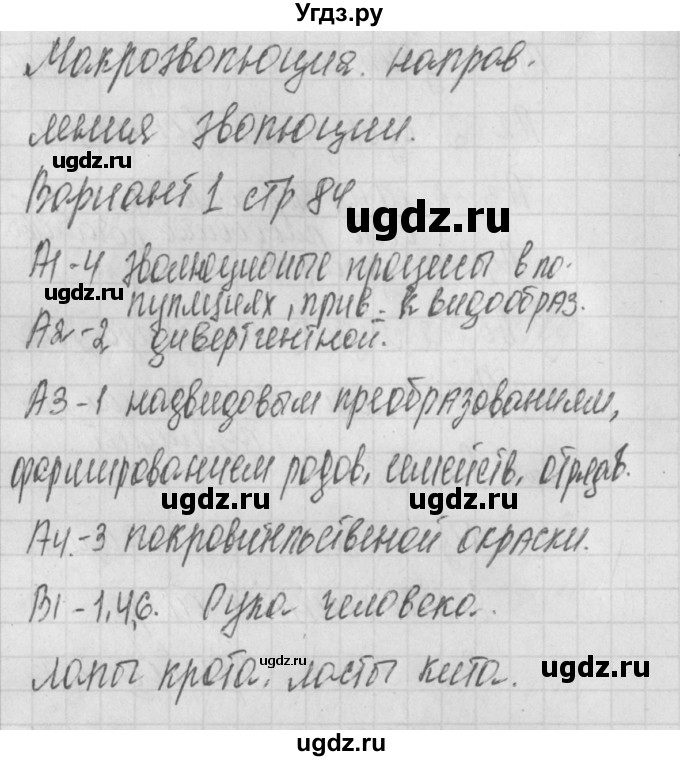 Угдз.ру
Макроэволюция. направ-
ления эволюции.
ugdz.ru
Вариант 1 стр 84
ugdz.ru
А1-4 эволюционые процессы в по-
ugdz.ru
пуляциях, прив. к видообраз.
А2-2 дивергентной.
А3-1 надвидовым преобразованиям,
формированием родов, семейств, отрядов.
ugdz.ru ugdz.ru
А4.-3 покровительственой окраски.
В1-1,4,6. Рука человека.
лапы крота, ласты кита.
ugdz.ru ugdz.ru
ugdz.ru